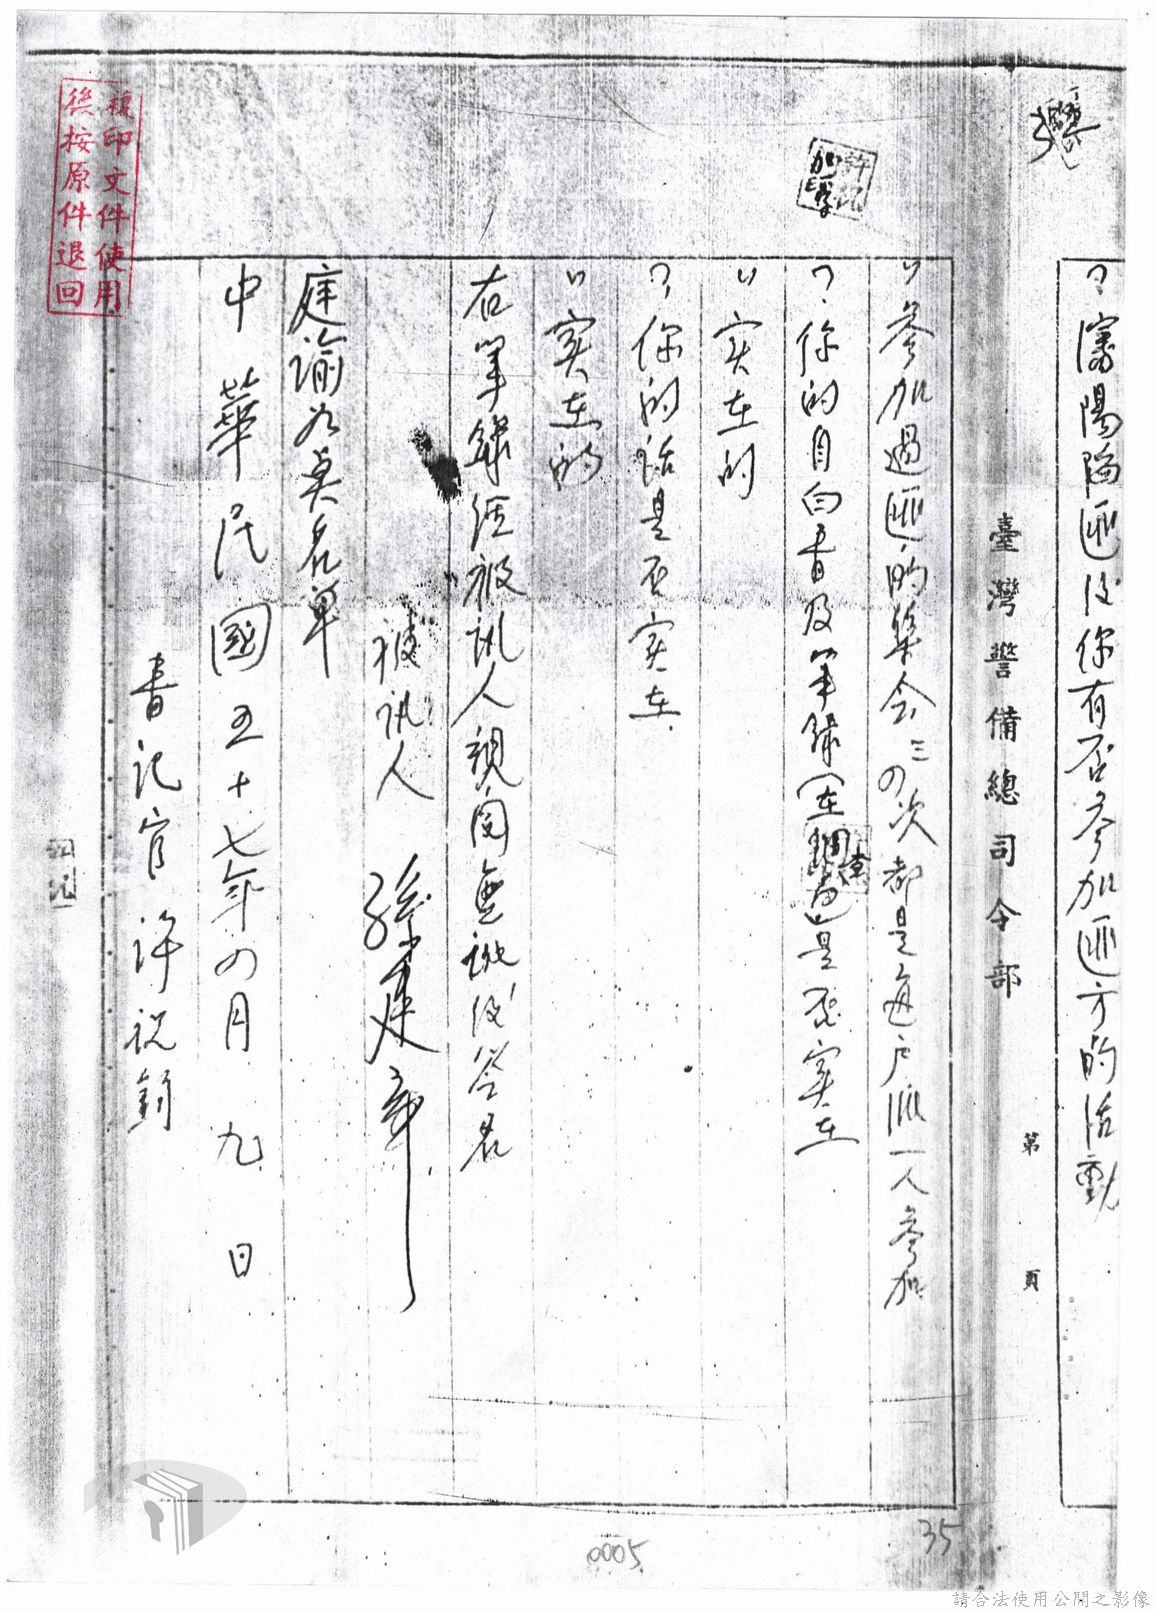 ？瀋陽陷匪後你有否參加匪方的活動
臺灣警備總司令部
第 頁
：參加過匪的集会三四次都是每戶派一人參加
？你的自白書及筆錄(在調
是否実在
：实在的
？你的話是否実在
：実在的
右筆錄經被訊人親閱無訛後簽名
被訊人 孫建章
庭諭
中華民國五十七年四月九日
書記官 許祝
複印文件使用
後按原件退回
35
0005
請合法使用公開之影像